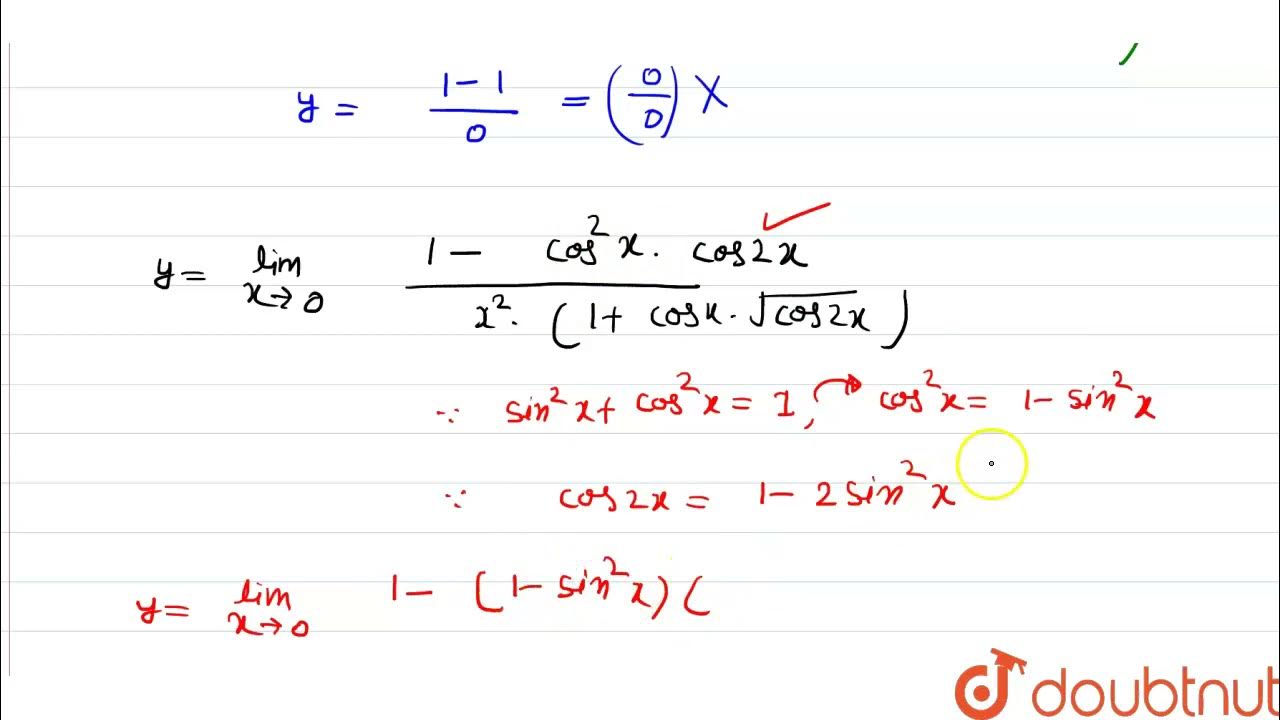 y = (1-1)/0 = (0/0) X
y = lim x→0 (1 - cos²x. cos2x)/(x². (1+ cosx. √cos2x))
∵ sin²x + cos²x = 1, cos²x = 1 - sin²x
∵ cos2x = 1 - 2 sin²x
y = lim x→0 1 - (1 - sin²x) (
doubtnut